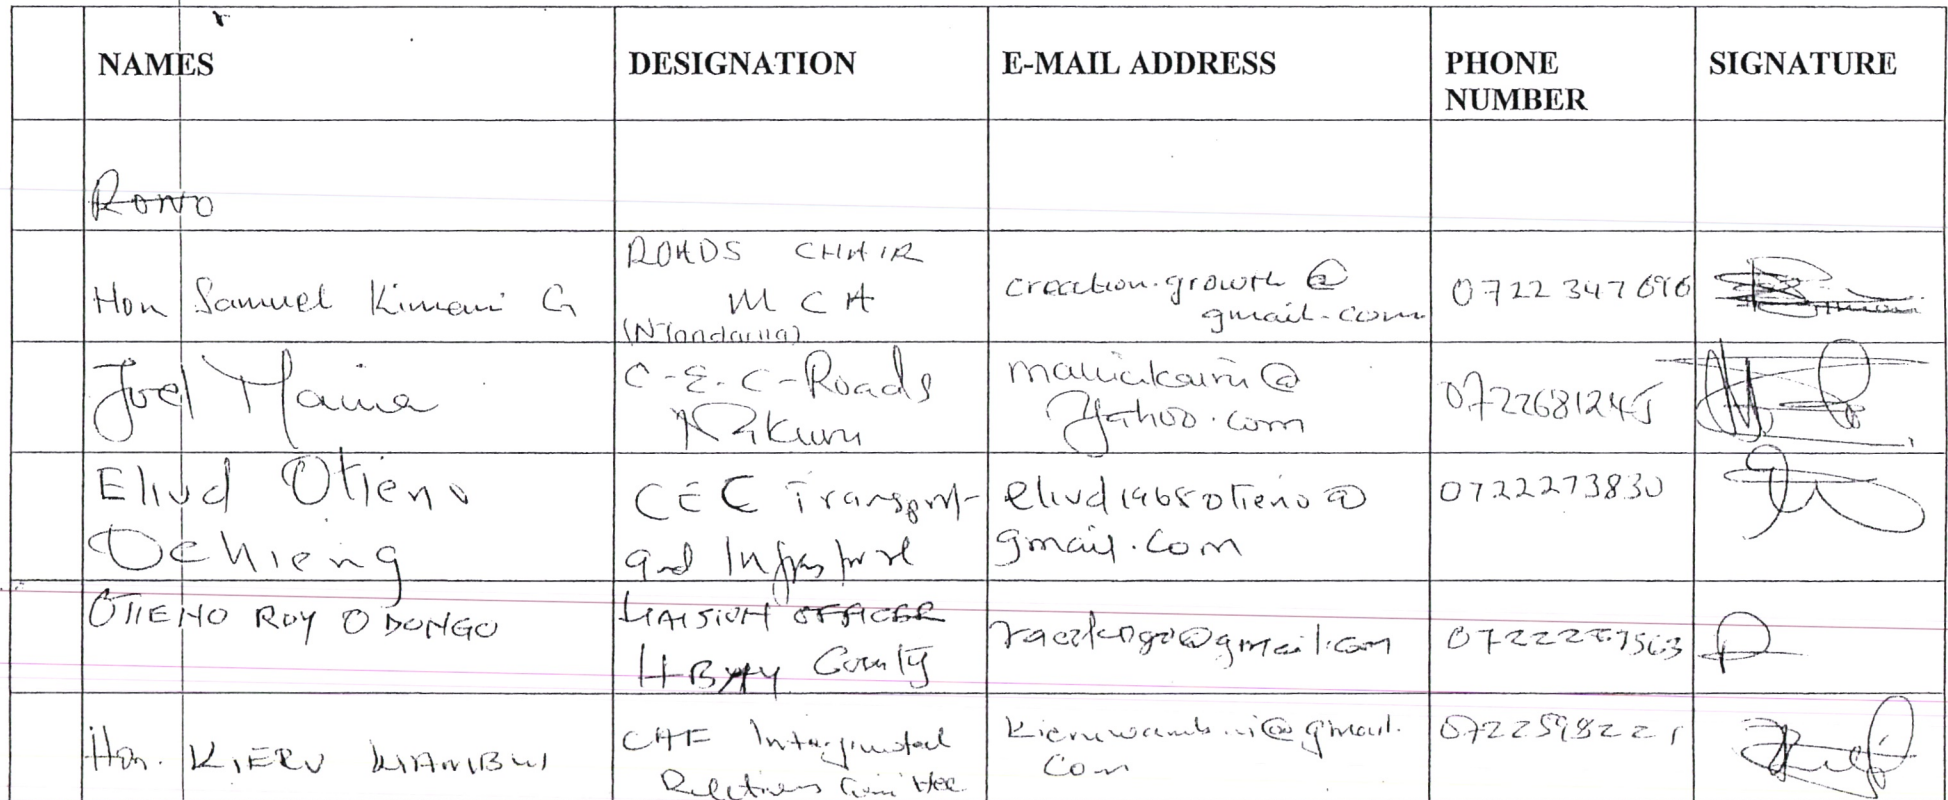 NAMES DESIGNATION E-MAIL ADDRESS PHONE NUMBER SIGNATURE
Rono
Hon Samuel Kimani G
ROADS CHAIR
MCA
(Nyandarua)
creation.growth@
gmail.com
0722 347 696
Joel Maina
C.E.C-Roads
Nakuru
mainakairu@
Yahoo.com
0722681245
Eliud Otieno
Ochieng
CEC Transport
and Infrastructure
eliud1968otieno@
gmail.com
0722273830
OTIENO ROY ODONGO
LIAISION OFFICER
H-BAY County
@gmail.com
Hon. KIERU WAMBUI
Relations Committee
kieruwambui@gmail.
com
0722598221